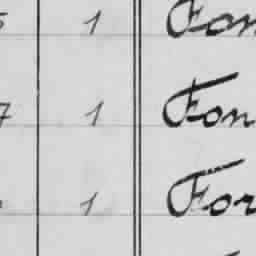 1 Fon
7 1 Fon
1 For